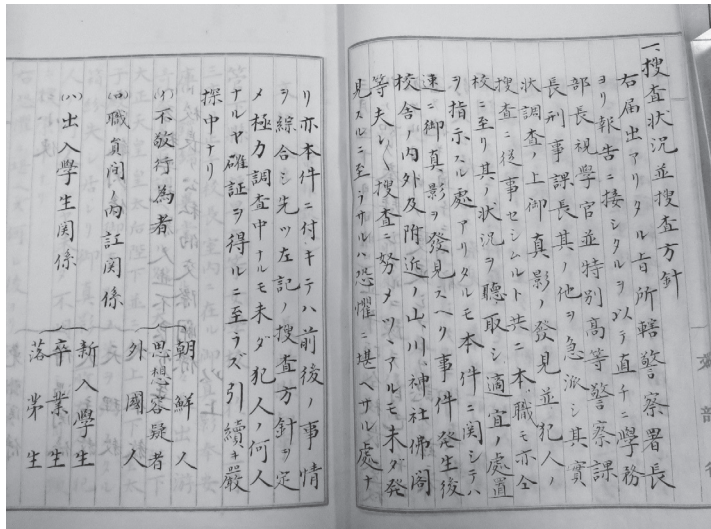 一、搜査狀況並搜査方針
右届出アリタル旨所轄警察署長
ヨリ報告ニ接シタルヲ以テ直チニ學務
部長視學官並特別高等警察課
長刑事課長其ノ他ヲ急派シ其實
狀調査ノ上御真影ノ發見並犯人ノ
搜査ニ從事セシムルト共ニ本職モ亦仝
校ニ至リ其ノ狀況ヲ聽取シ適宜ノ處置
ヲ指示スル處アリタルモ本件ニ関シテハ
速ニ御真影ヲ發見スヘク事件發生後
校舍ノ内外及附近ノ山、川、神社佛閣
等夫レ〱搜査ニ努メツヽアルモ未ダ發
見スルニ至ラサルハ恐懼ニ堪ヘサル處ナ
リ亦本件ニ付キテハ前後ノ事情
ヲ綜合シ先ツ左記搜査方針ヲ定
メ極力調査中ナルモ未ダ犯人ノ何人
ナルヤ確証ヲ得ルニ至ラズ引續キ嚴
探中ナリ
(イ)不敬行為者
朝鮮人
思想容疑者
外國人
(ロ)職員間ノ内訌関係
(ハ)出入學生関係
新入學生
卒業生
落第生